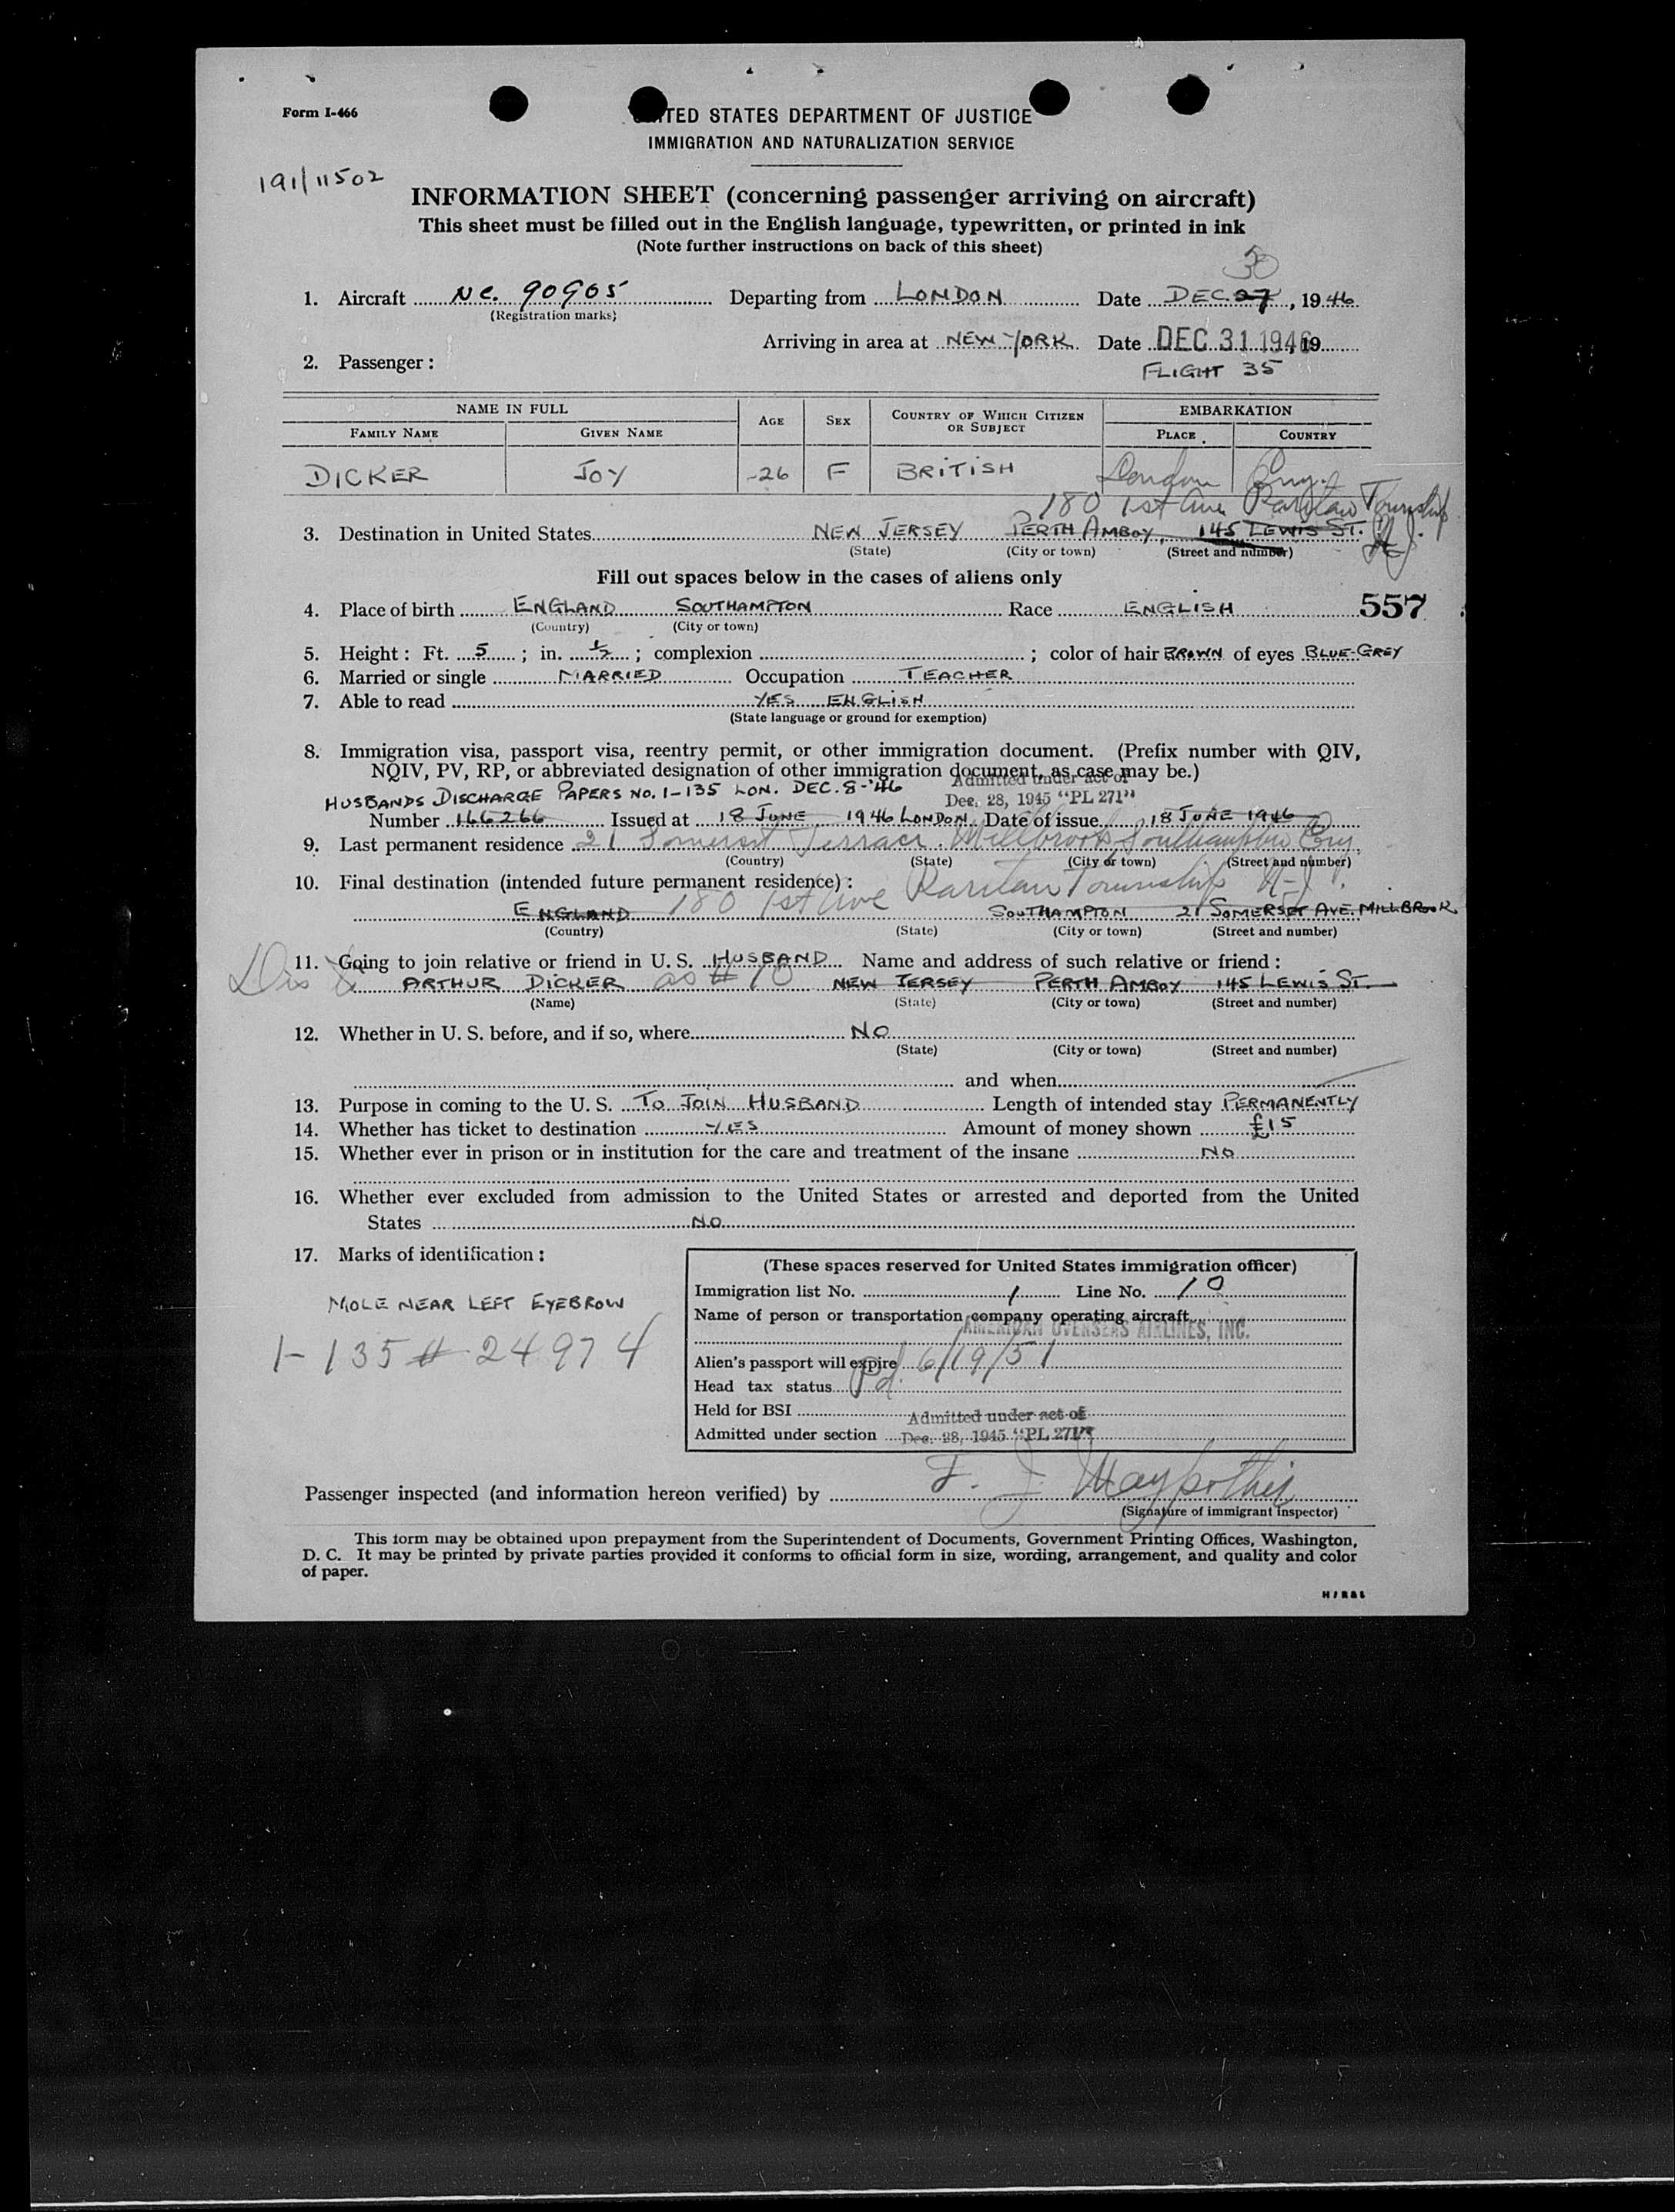 Form I-466
UNITED STATES DEPARTMENT OF JUSTICE
IMMIGRATION AND NATURALIZATION SERVICE
191/11502
INFORMATION SHEET (concerning passenger arriving on aircraft)
This sheet must be filled out in the English language, typewritten, or printed in ink
(Note further instructions on back of this sheet)
30
1. Aircraft NC. 90905 Departing from LONDON Date DEC. 27, 1946
(Registration marks)
Arriving in area at NEW YORK Date DEC 31 1946 19
2. Passenger:
FLIGHT 35
NAME IN FULL AGE SEX COUNTRY OF WHICH CITIZEN OR SUBJECT EMBARKATION
FAMILY NAME GIVEN NAME PLACE COUNTRY
DICKER JOY 26 F BRITISH London Eng.
180 1st Ave Raritan Township N.J.
3. Destination in United States NEW JERSEY PERTH AMBOY, 145 LEWIS ST.
(State) (City or town) (Street and number)
Fill out spaces below in the cases of aliens only
4. Place of birth ENGLAND SOUTHAMPTON Race ENGLISH 557
(Country) (City or town)
5. Height: Ft. 5; in. ½; complexion ; color of hair BROWN of eyes BLUE-GREY
6. Married or single MARRIED Occupation TEACHER
7. Able to read YES ENGLISH
(State language or ground for exemption)
8. Immigration visa, passport visa, reentry permit, or other immigration document. (Prefix number with QIV,
NQIV, PV, RP, or abbreviated designation of other immigration document, as case may be.)
Admitted under act of
HUSBANDS DISCHARGE PAPERS NO. 1-135 LON. DEC. 8-'46 Dec. 28, 1945 "PL 271"
Number 166266 Issued at 18 JUNE 1946 LONDON Date of issue 18 JUNE 1946
9. Last permanent residence 21 Somerset Terrace. Millbrook, Southampton Eng.
(Country) (State) (City or town) (Street and number)
10. Final destination (intended future permanent residence):
180 1st Ave Raritan Township N-J.
ENGLAND SOUTHAMPTON 21 SOMERSET AVE. MILLBROOK
(Country) (State) (City or town) (Street and number)
11. Going to join relative or friend in U. S. HUSBAND Name and address of such relative or friend:
ARTHUR DICKER as # 10 NEW JERSEY PERTH AMBOY 145 LEWIS ST.
(Name) (State) (City or town) (Street and number)
12. Whether in U. S. before, and if so, where NO
(State) (City or town) (Street and number)
and when
13. Purpose in coming to the U. S. TO JOIN HUSBAND Length of intended stay PERMANENTLY
14. Whether has ticket to destination YES Amount of money shown £15
15. Whether ever in prison or in institution for the care and treatment of the insane NO
16. Whether ever excluded from admission to the United States or arrested and deported from the United
States NO
17. Marks of identification:
MOLE NEAR LEFT EYEBROW
1-135 # 24974
(These spaces reserved for United States immigration officer)
Immigration list No. 1 Line No. 10
Name of person or transportation company operating aircraft
AMERICAN OVERSEAS AIRLINES, INC.
Alien's passport will expire 6/19/51
Head tax status Pd.
Held for BSI
Admitted under act of
Admitted under section Dec. 28, 1945 "PL 271"
Passenger inspected (and information hereon verified) by F. J.
(Signature of immigrant inspector)
This form may be obtained upon prepayment from the Superintendent of Documents, Government Printing Offices, Washington,
D. C. It may be printed by private parties provided it conforms to official form in size, wording, arrangement, and quality and color
of paper.